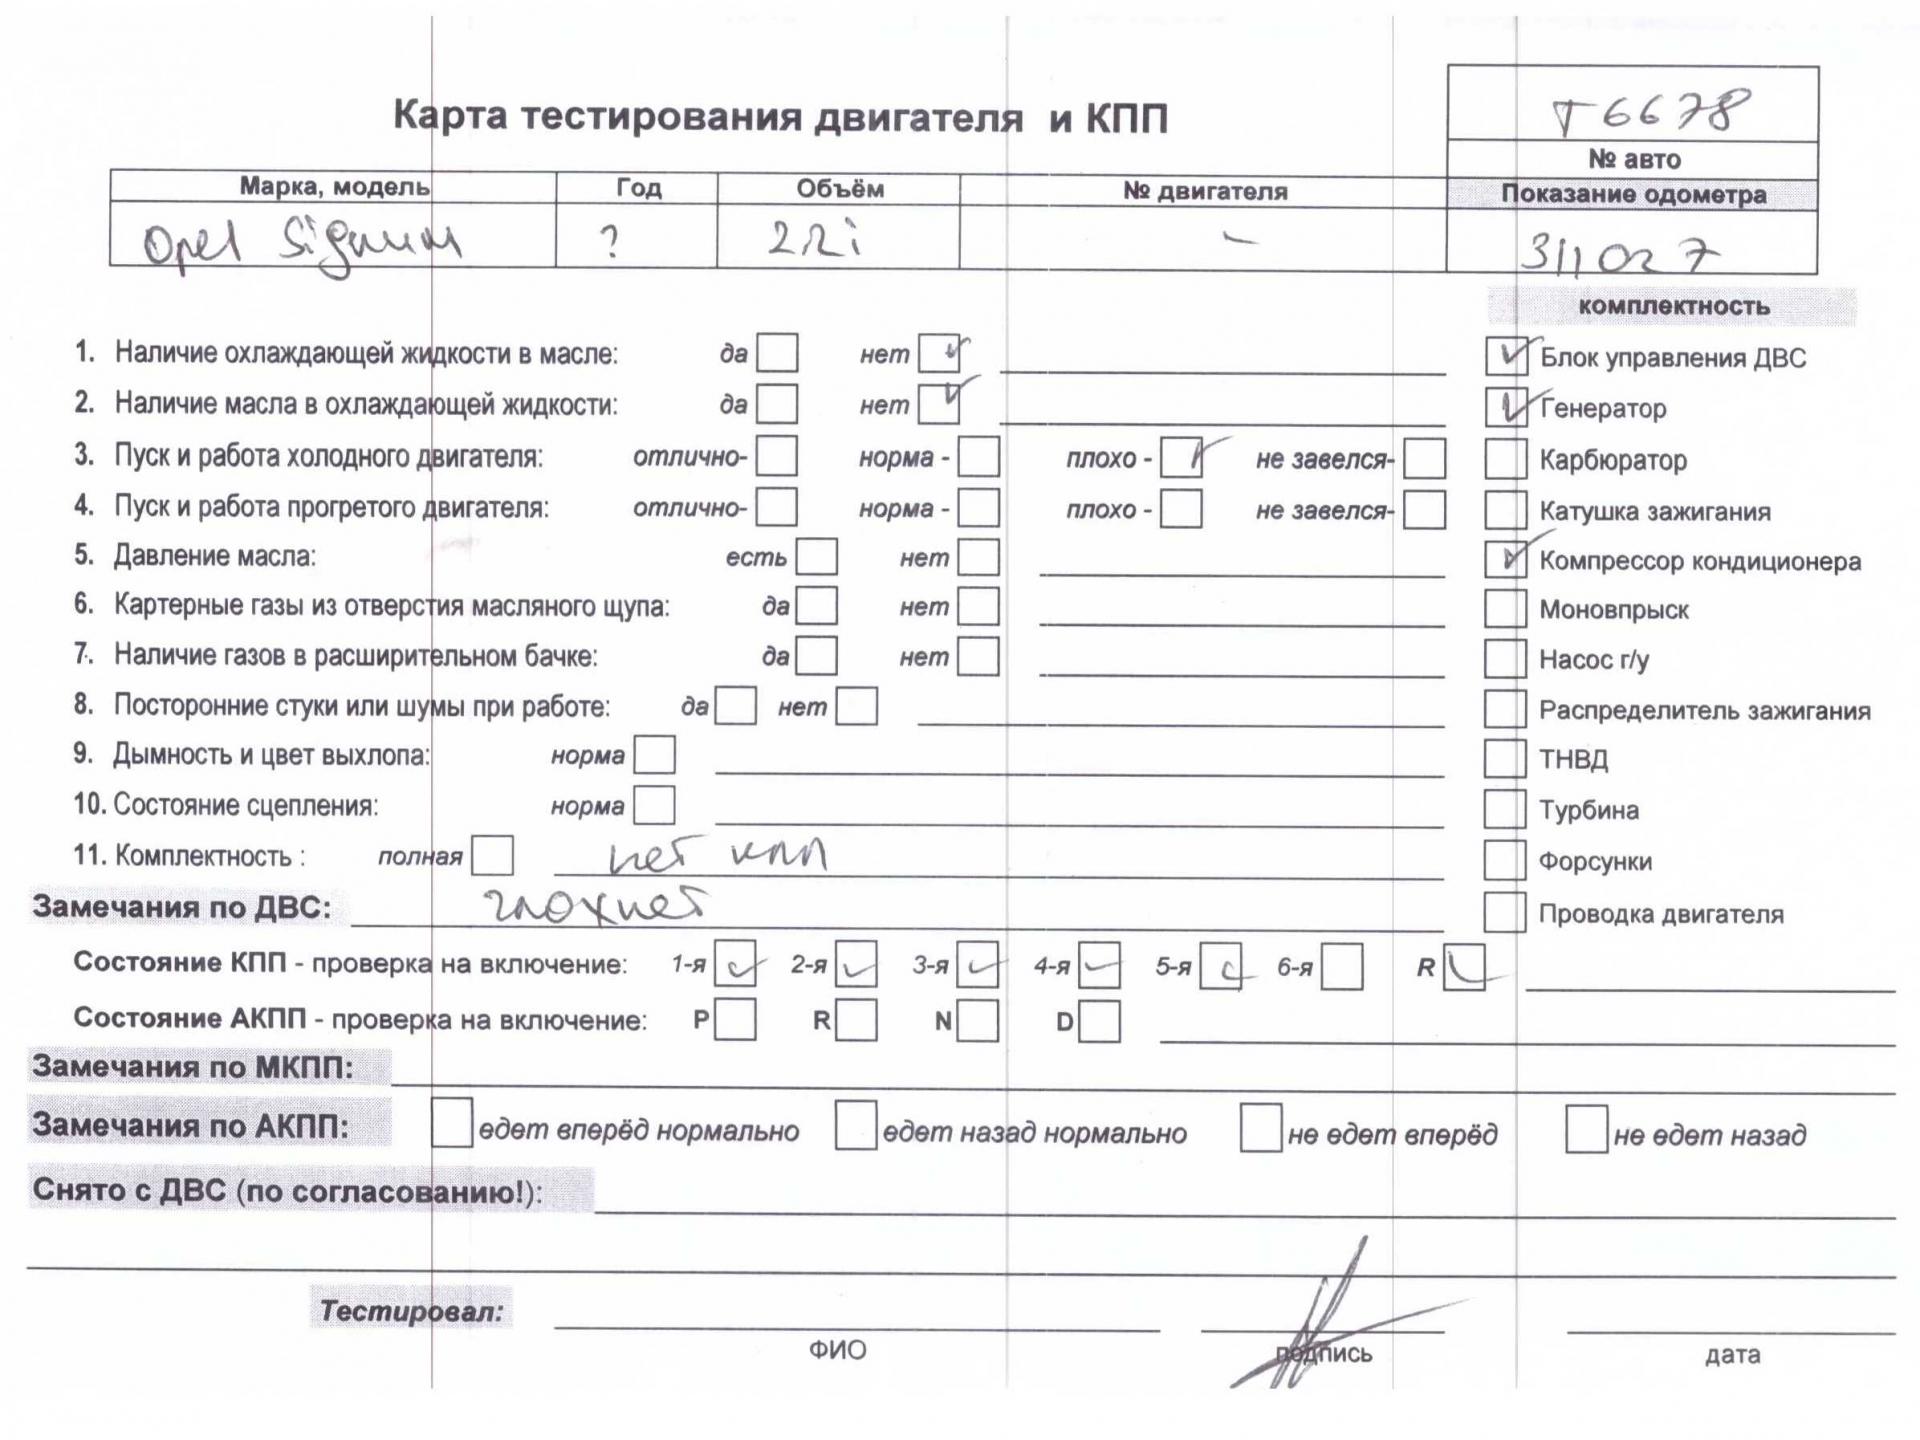 Карта тестирования двигателя и КПП
т 6678
№ авто
Марка, модель Год Объём № двигателя Показание одометра
Opel Signum ? 2.2i - 311027
комплектность
1. Наличие охлаждающей жидкости в масле: да нет ✓ ✓ Блок управления ДВС
2. Наличие масла в охлаждающей жидкости: да нет ✓ ✓ Генератор
3. Пуск и работа холодного двигателя: отлично- норма - плохо - ✓ не завелся- Карбюратор
4. Пуск и работа прогретого двигателя: отлично- норма - плохо - не завелся- Катушка зажигания
5. Давление масла: есть нет ✓ Компрессор кондиционера
6. Картерные газы из отверстия масляного щупа: да нет Моновпрыск
7. Наличие газов в расширительном бачке: да нет Насос г/у
8. Посторонние стуки или шумы при работе: да нет Распределитель зажигания
9. Дымность и цвет выхлопа: норма ТНВД
10. Состояние сцепления: норма Турбина
11. Комплектность : полная нет кпп Форсунки
Замечания по ДВС: глохнет Проводка двигателя
Состояние КПП - проверка на включение: 1-я ✓ 2-я ✓ 3-я ✓ 4-я ✓ 5-я ✓ 6-я R ✓
Состояние АКПП - проверка на включение: P R N D
Замечания по МКПП:
Замечания по АКПП: едет вперёд нормально едет назад нормально не едет вперёд не едет назад
Снято с ДВС (по согласованию!):
Тестировал:
ФИО подпись дата